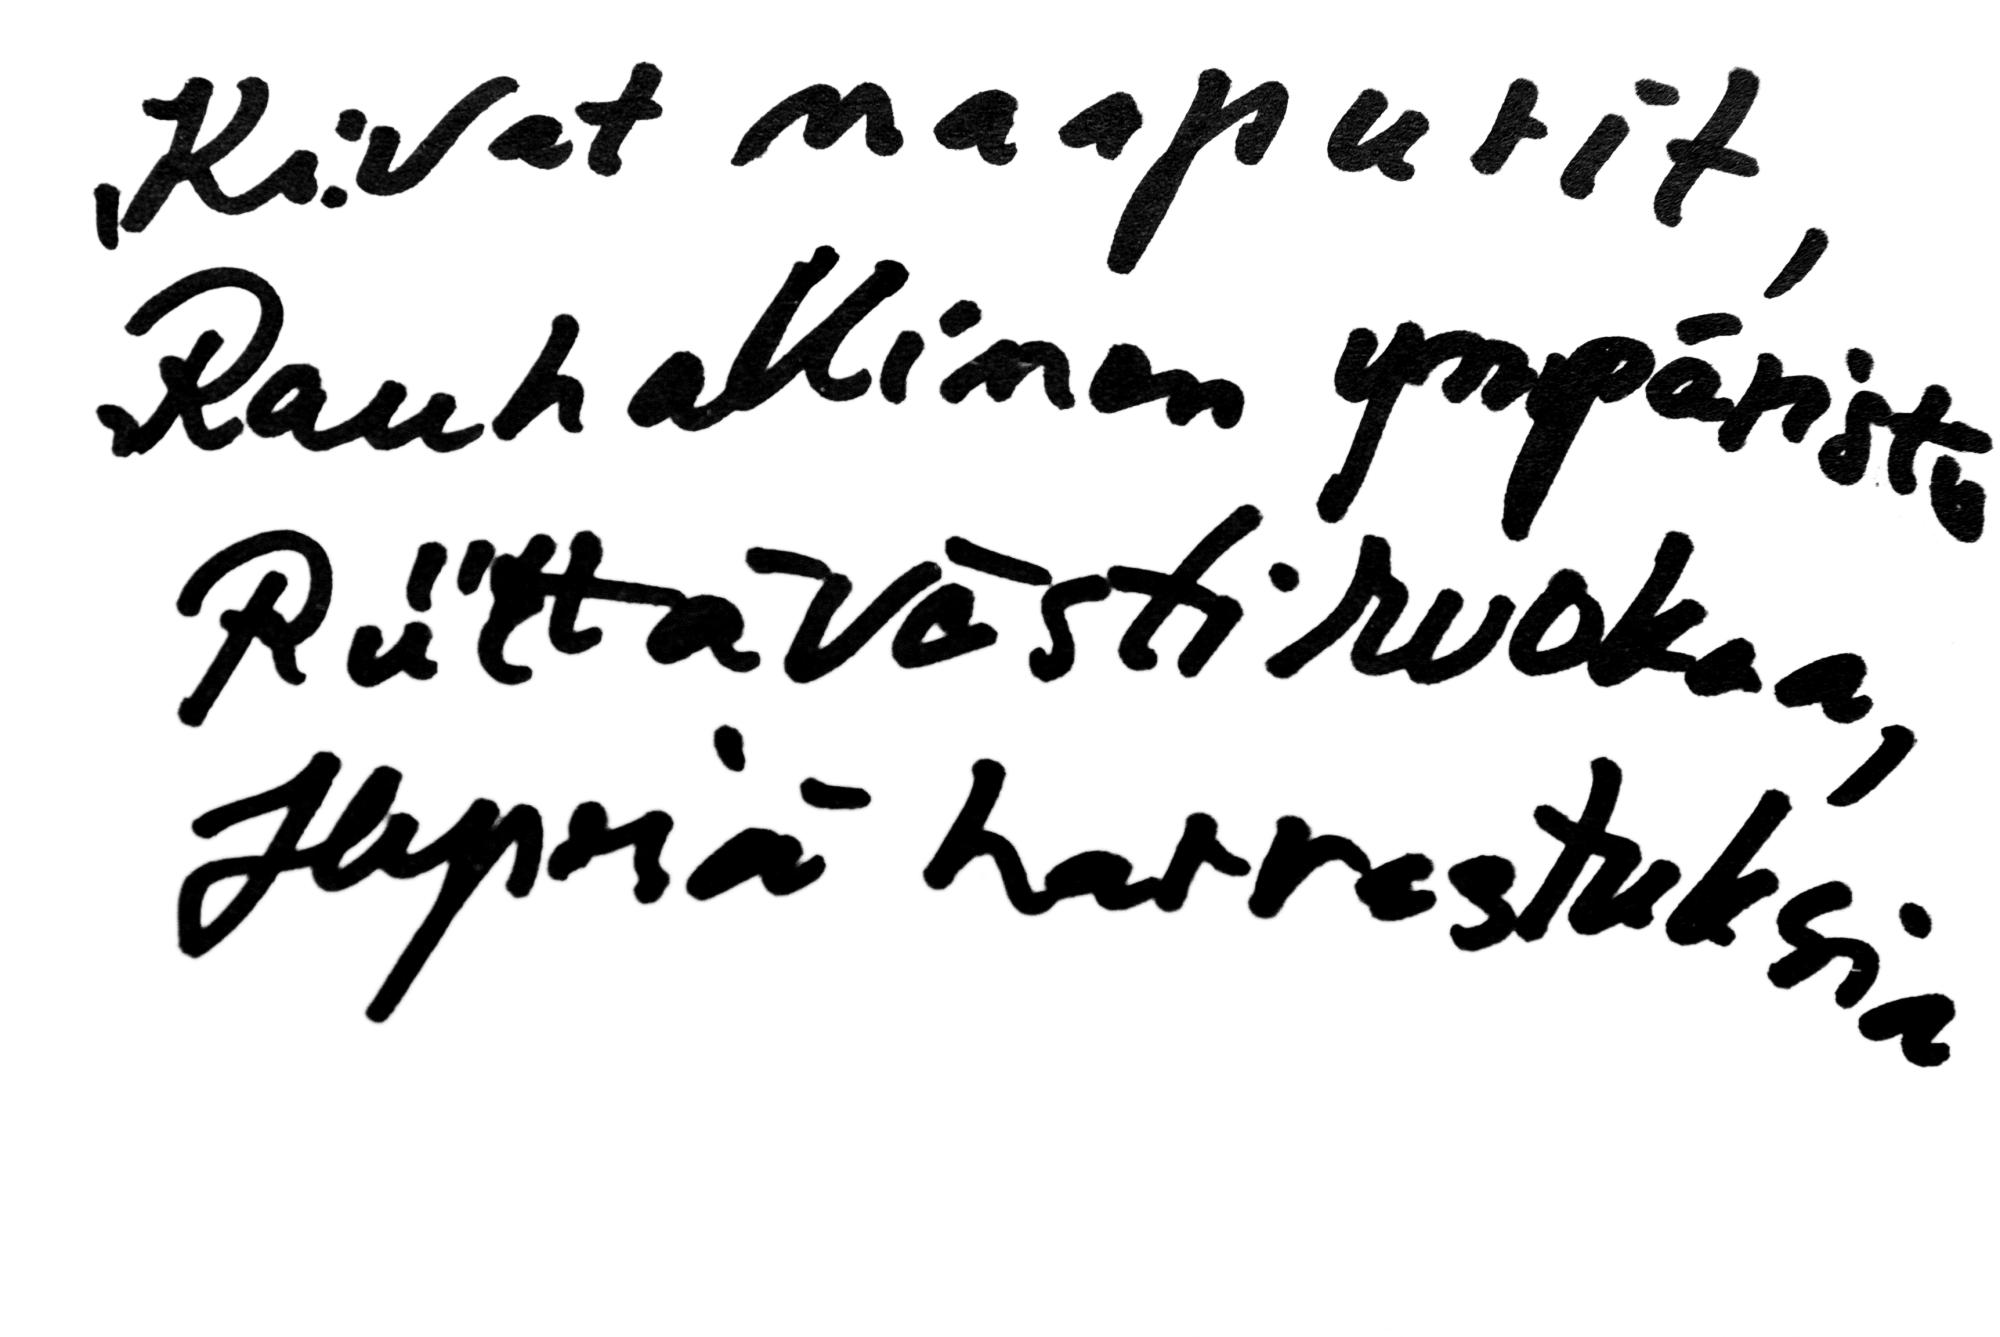 Kivat naapurit,
Rauhallinen ympäristö
Riittävästi ruokaa,
Hypviä harrastuksia